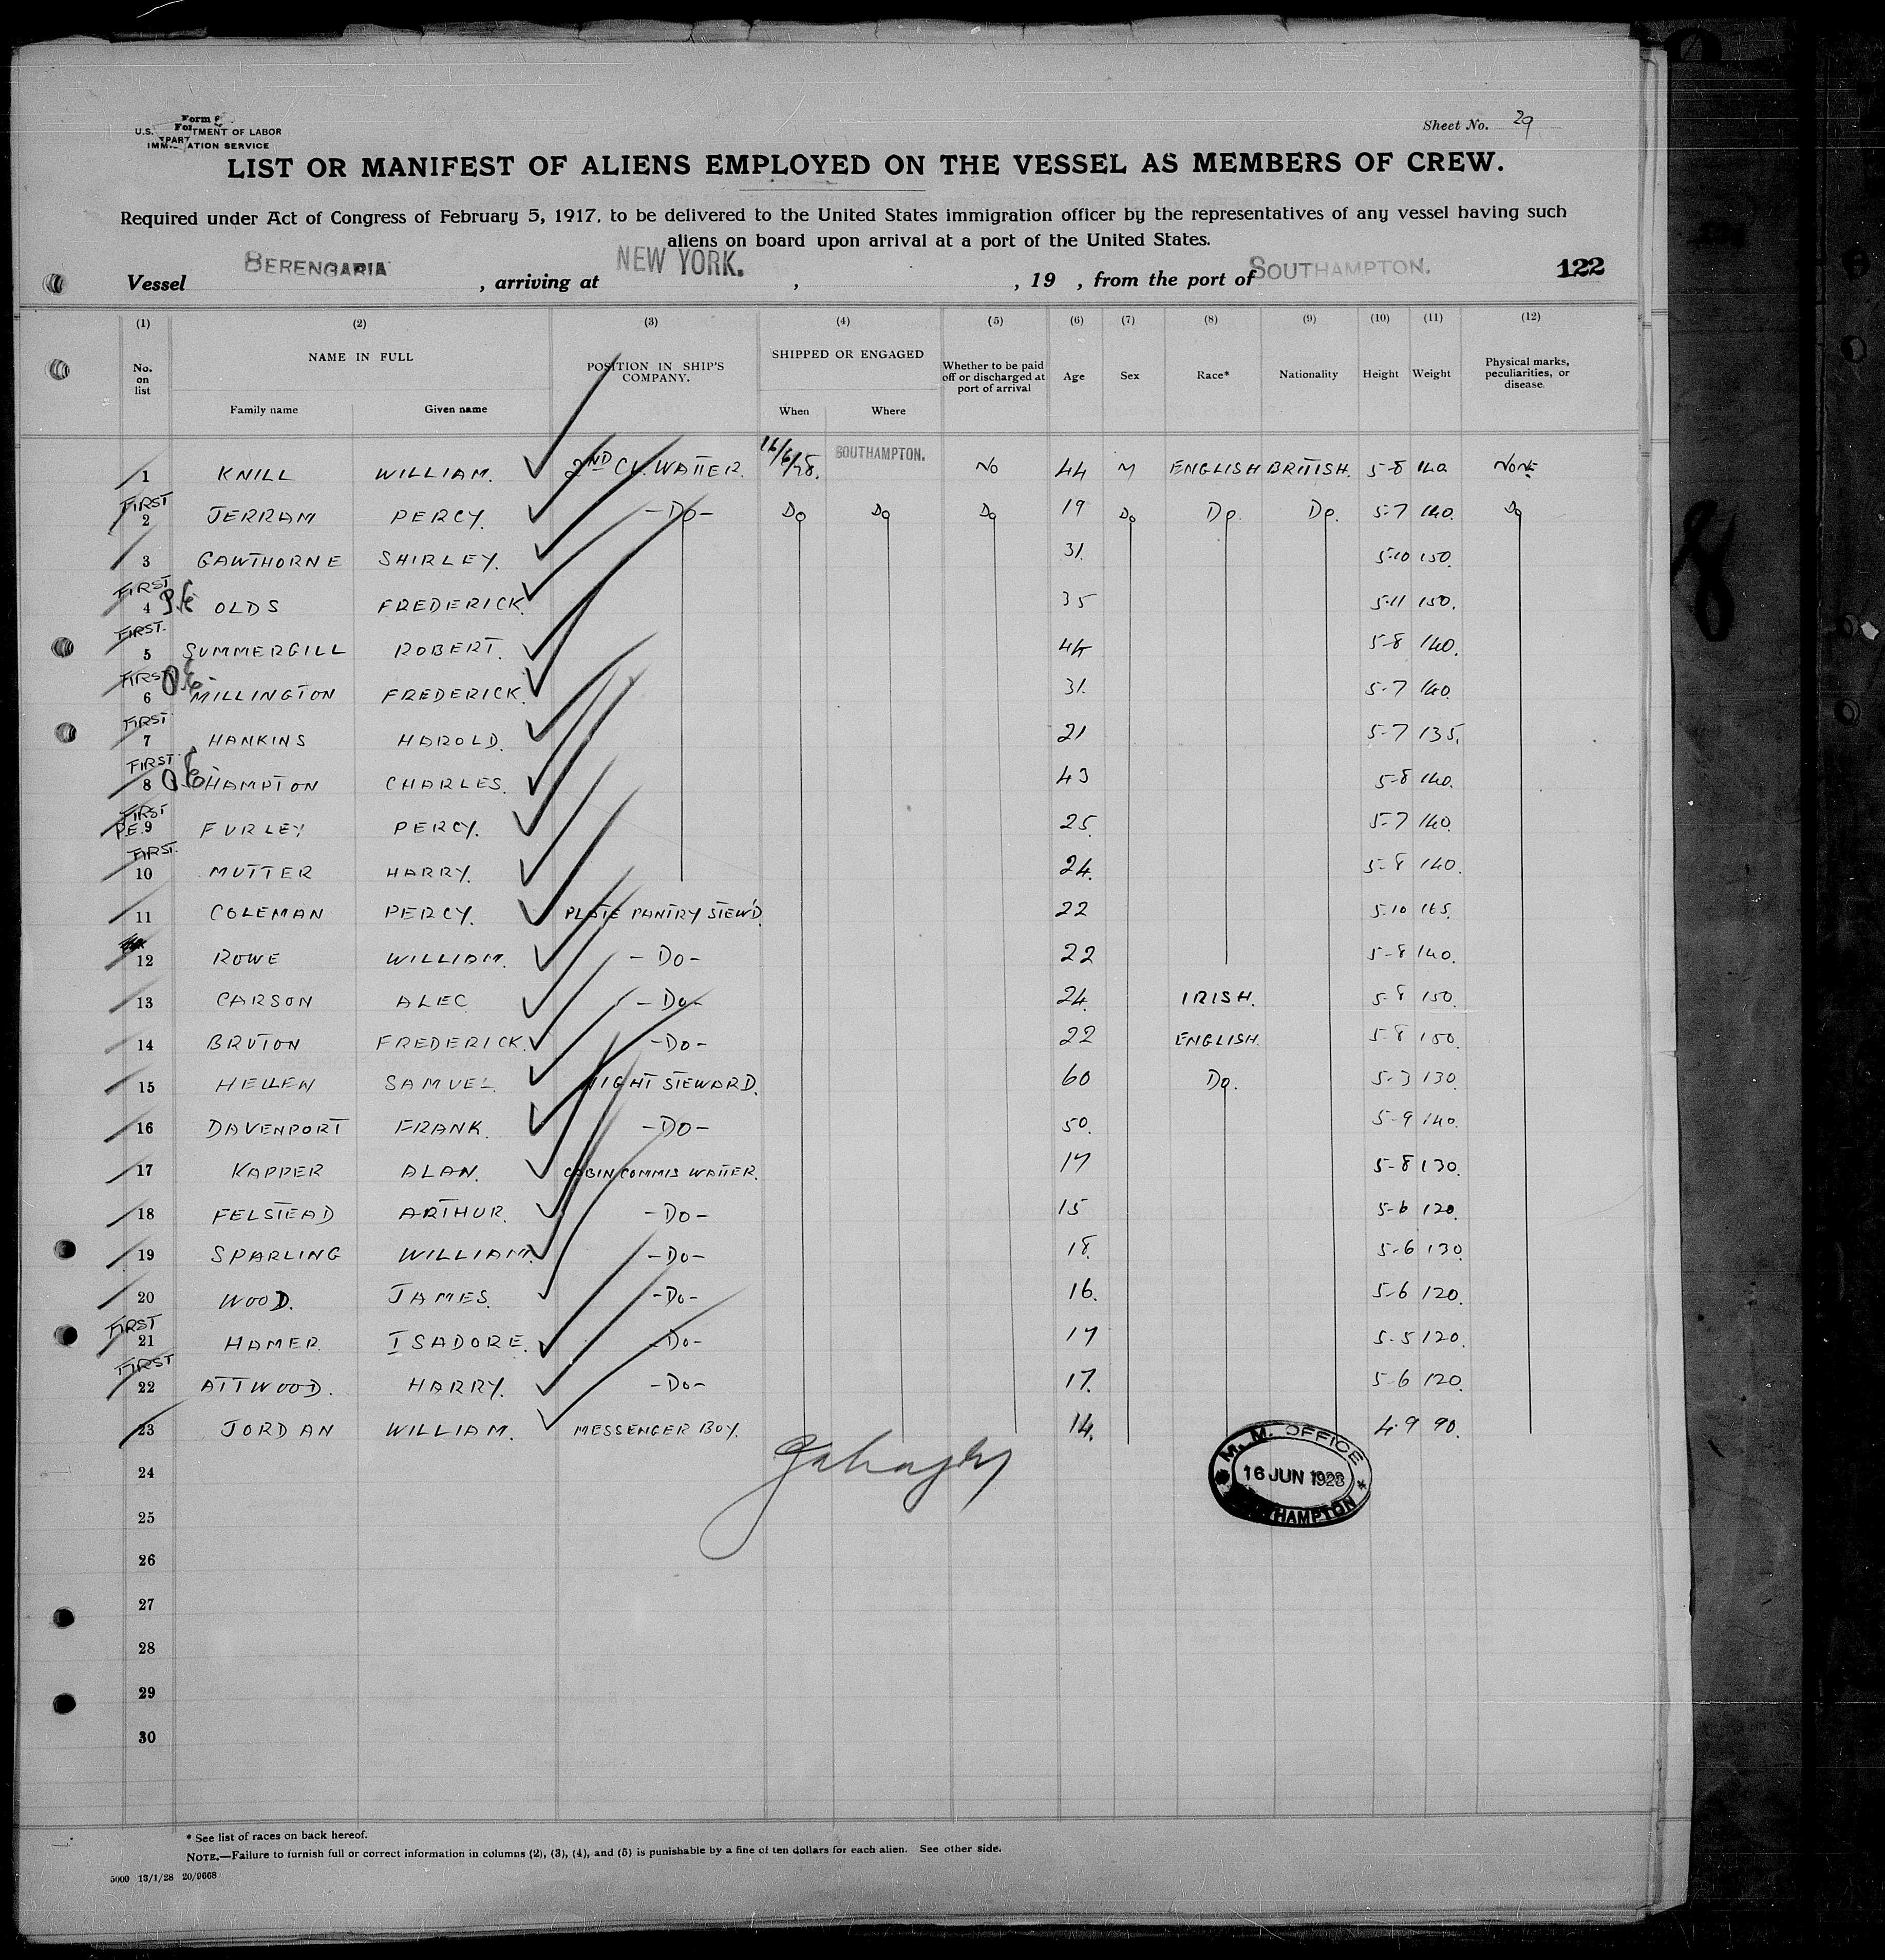 Form
U.S. DEPARTMENT OF LABOR
IMMIGRATION SERVICE
Sheet No. 29
LIST OR MANIFEST OF ALIENS EMPLOYED ON THE VESSEL AS MEMBERS OF CREW.
Required under Act of Congress of February 5, 1917, to be delivered to the United States immigration officer by the representatives of any vessel having such
aliens on board upon arrival at a port of the United States.
Vessel BERENGARIA, arriving at NEW YORK. , , 19 , from the port of SOUTHAMPTON. 122
(1) (2) (3) (4) (5) (6) (7) (8) (9) (10) (11) (12)
No. on list NAME IN FULL Family name Given name POSITION IN SHIP'S COMPANY. SHIPPED OR ENGAGED When Where Whether to be paid off or discharged at port of arrival Age Sex Race* Nationality Height Weight Physical marks, peculiarities, or disease.
1 KNILL WILLIAM. 2ND CL. WAITER. 16/6/28. SOUTHAMPTON. NO 44 M ENGLISH BRITISH. 5-8 140 NONE
FIRST 2 JERRAM PERCY. -DO- DO DO DO 19 DO DO. DO. 5-7 140. DO
3 GAWTHORNE SHIRLEY. 31. 5-10 150.
FIRST 4 OLDS FREDERICK. 35 5-11 150.
FIRST. 5 SUMMERGILL ROBERT. 44 5-8 140.
FIRST 6 MILLINGTON FREDERICK. 31. 5-7 140.
FIRST 7 HANKINS HAROLD. 21 5-7 135.
FIRST 8 HAMPTON CHARLES. 43 5-8 140.
FIRST P.E. 9 FURLEY PERCY. 25. 5-7 140.
FIRST. 10 MUTTER HARRY. 24. 5-8 140.
11 COLEMAN PERCY. PLATE PANTRY STEW'D 22 5-10 165.
12 ROWE WILLIAM. -DO- 22 5-8 140.
13 CARSON ALEC -DO- 24. IRISH. 5-8 150.
14 BRUTON FREDERICK. -DO- 22 ENGLISH. 5-8 150.
15 HELLEN SAMUEL. NIGHT STEWARD. 60 DO. 5-3 130.
16 DAVENPORT FRANK. -DO- 50. 5-9 140.
17 KAPPER ALAN. CABIN COMMIS WAITER. 17 5-8 130.
18 FELSTEAD ARTHUR. -DO- 15 5-6 120.
19 SPARLING WILLIAM. -DO- 18. 5-6 130.
20 WOOD. JAMES. -DO- 16. 5-6 120.
FIRST 21 HAMER. ISADORE. -DO- 17 5-5 120.
FIRST 22 ATTWOOD. HARRY. -DO- 17. 5-6 120.
23 JORDAN WILLIAM. MESSENGER BOY. 14. 4-9 90.
24
25
26
27
28
29
30
M. M. OFFICE
16 JUN 1928
SOUTHAMPTON
* See list of races on back hereof.
NOTE.—Failure to furnish full or correct information in columns (2), (3), (4), and (5) is punishable by a fine of ten dollars for each alien. See other side.
5000 13/1/28 20/9668